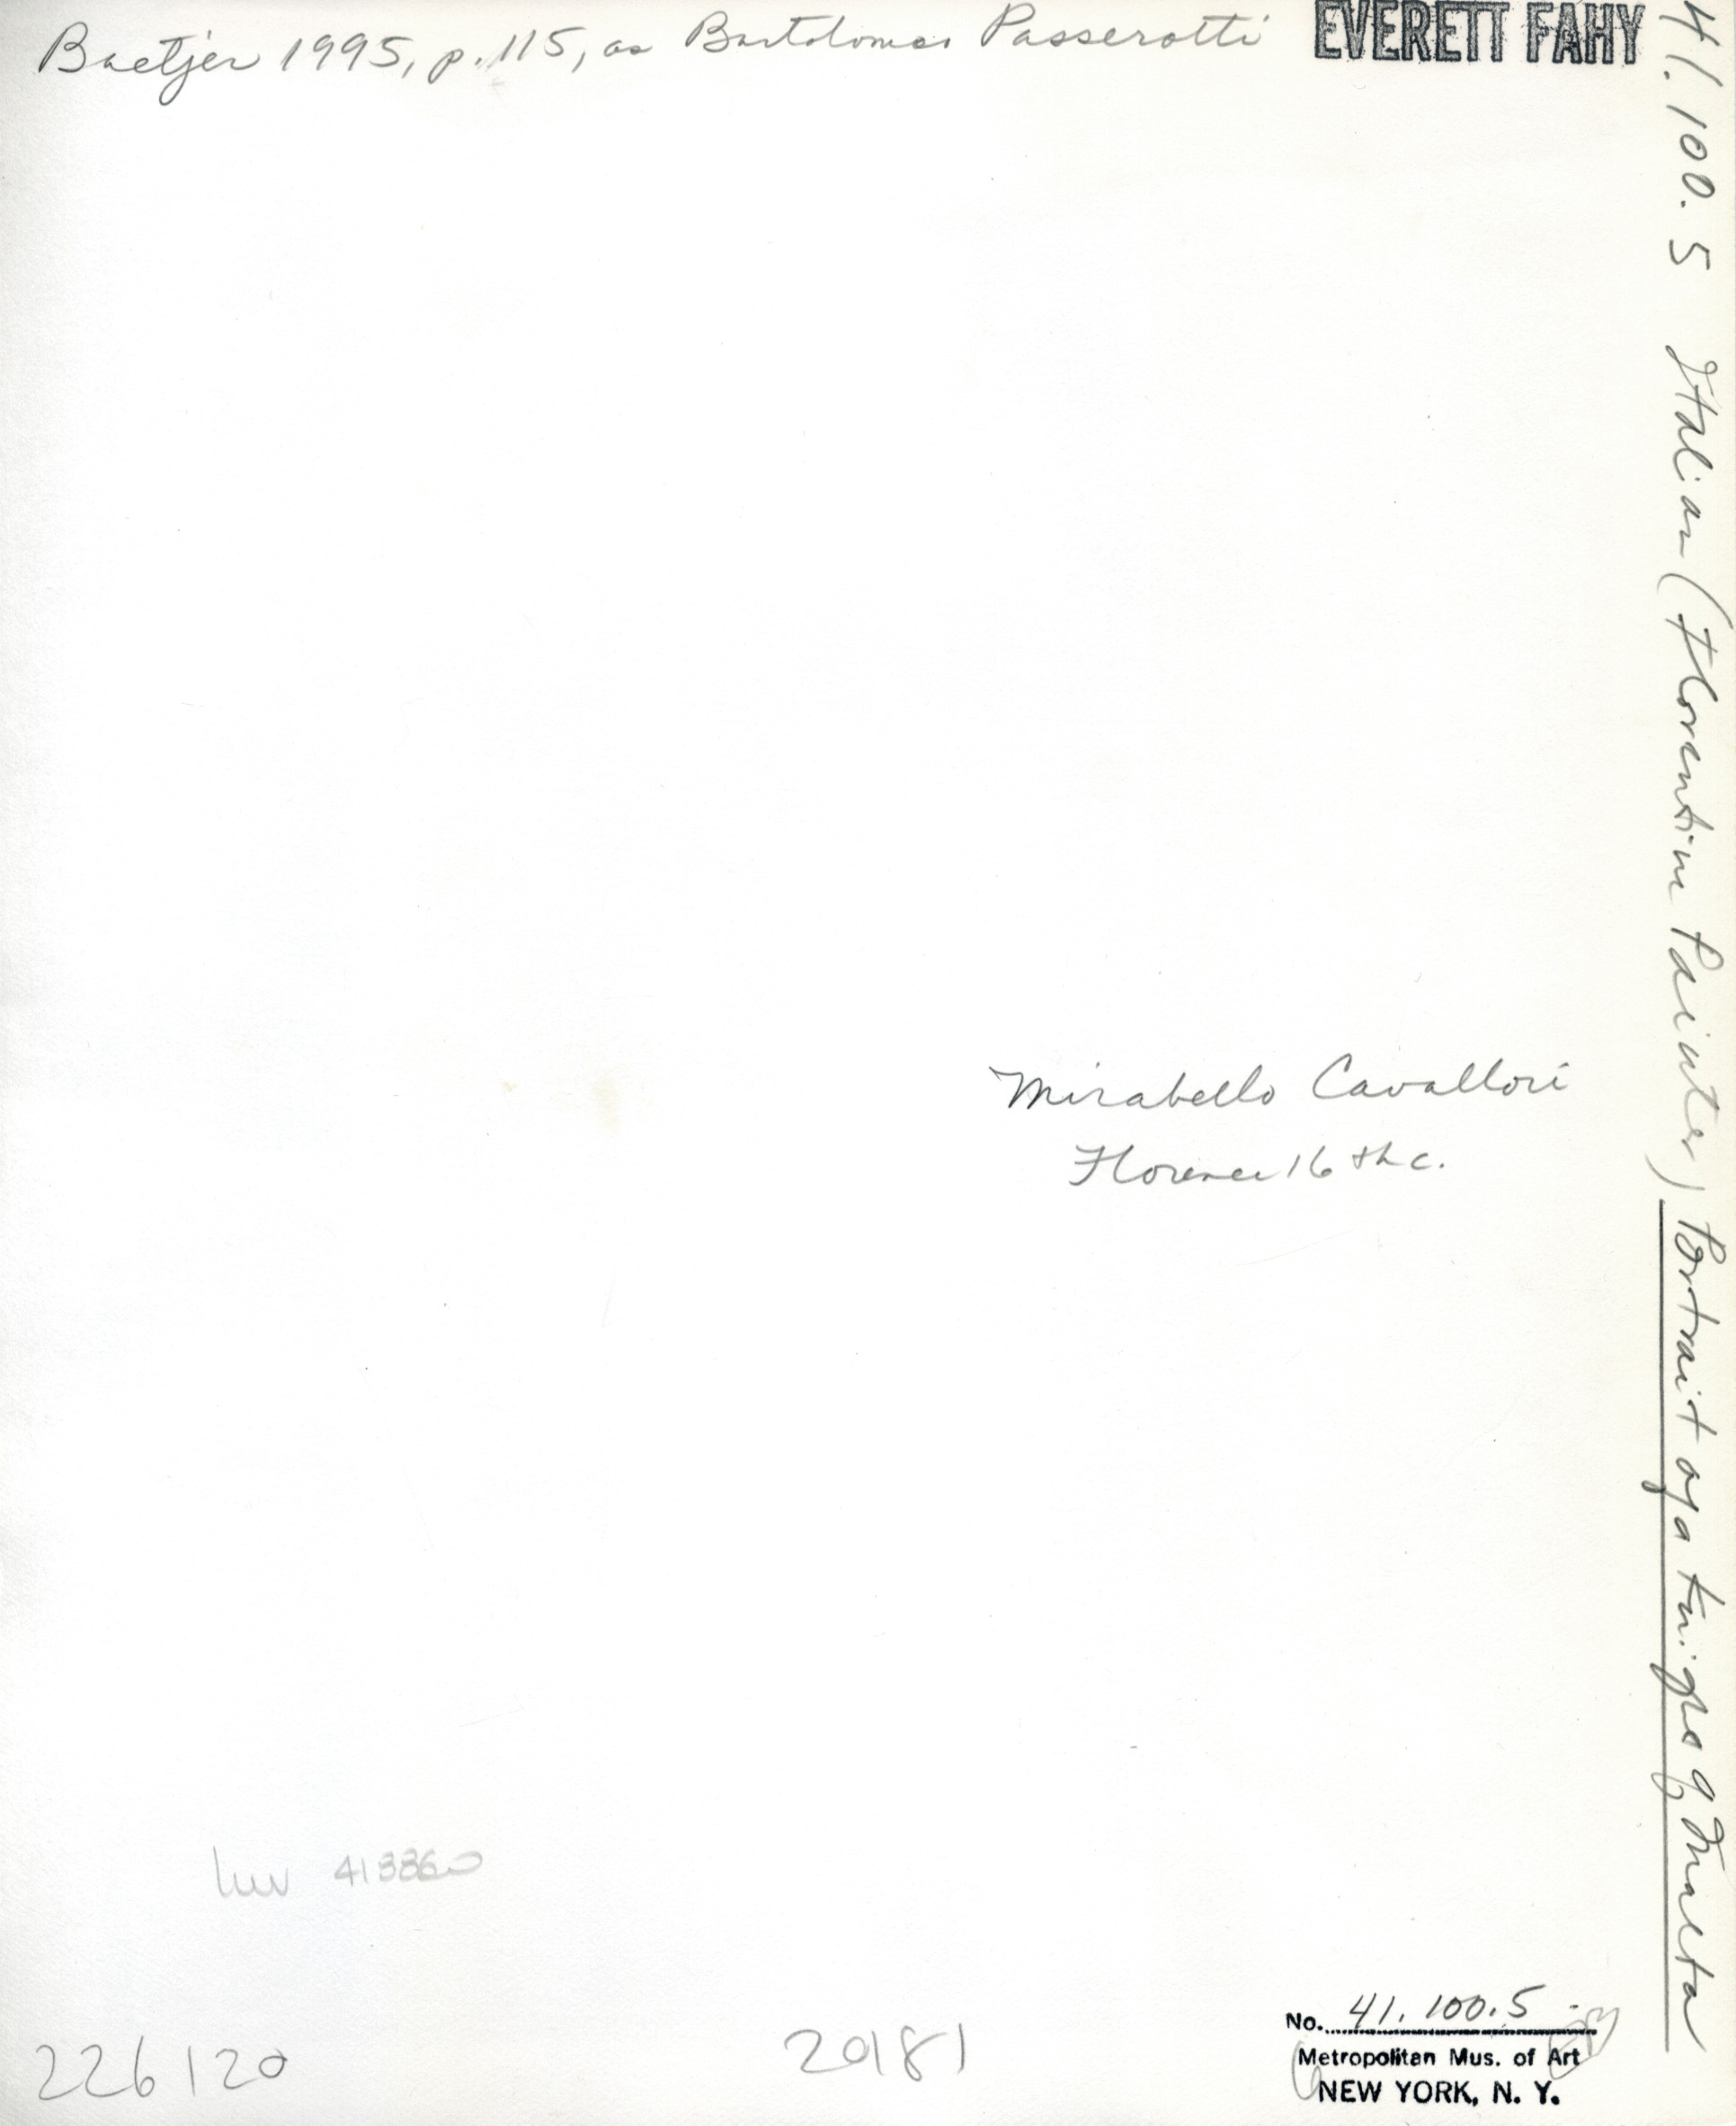 Baetjer 1995, p. 115, as Bartolomeo Passerotti
EVERETT FAHY
41.100.5 Italian (Florentine Painter) Portrait of a Knight of Malta
Mirabello Cavallori
Florence 16th c.
Inv 413860
226120
No. 41.100.5
Metropolitan Mus. of Art
NEW YORK, N. Y.